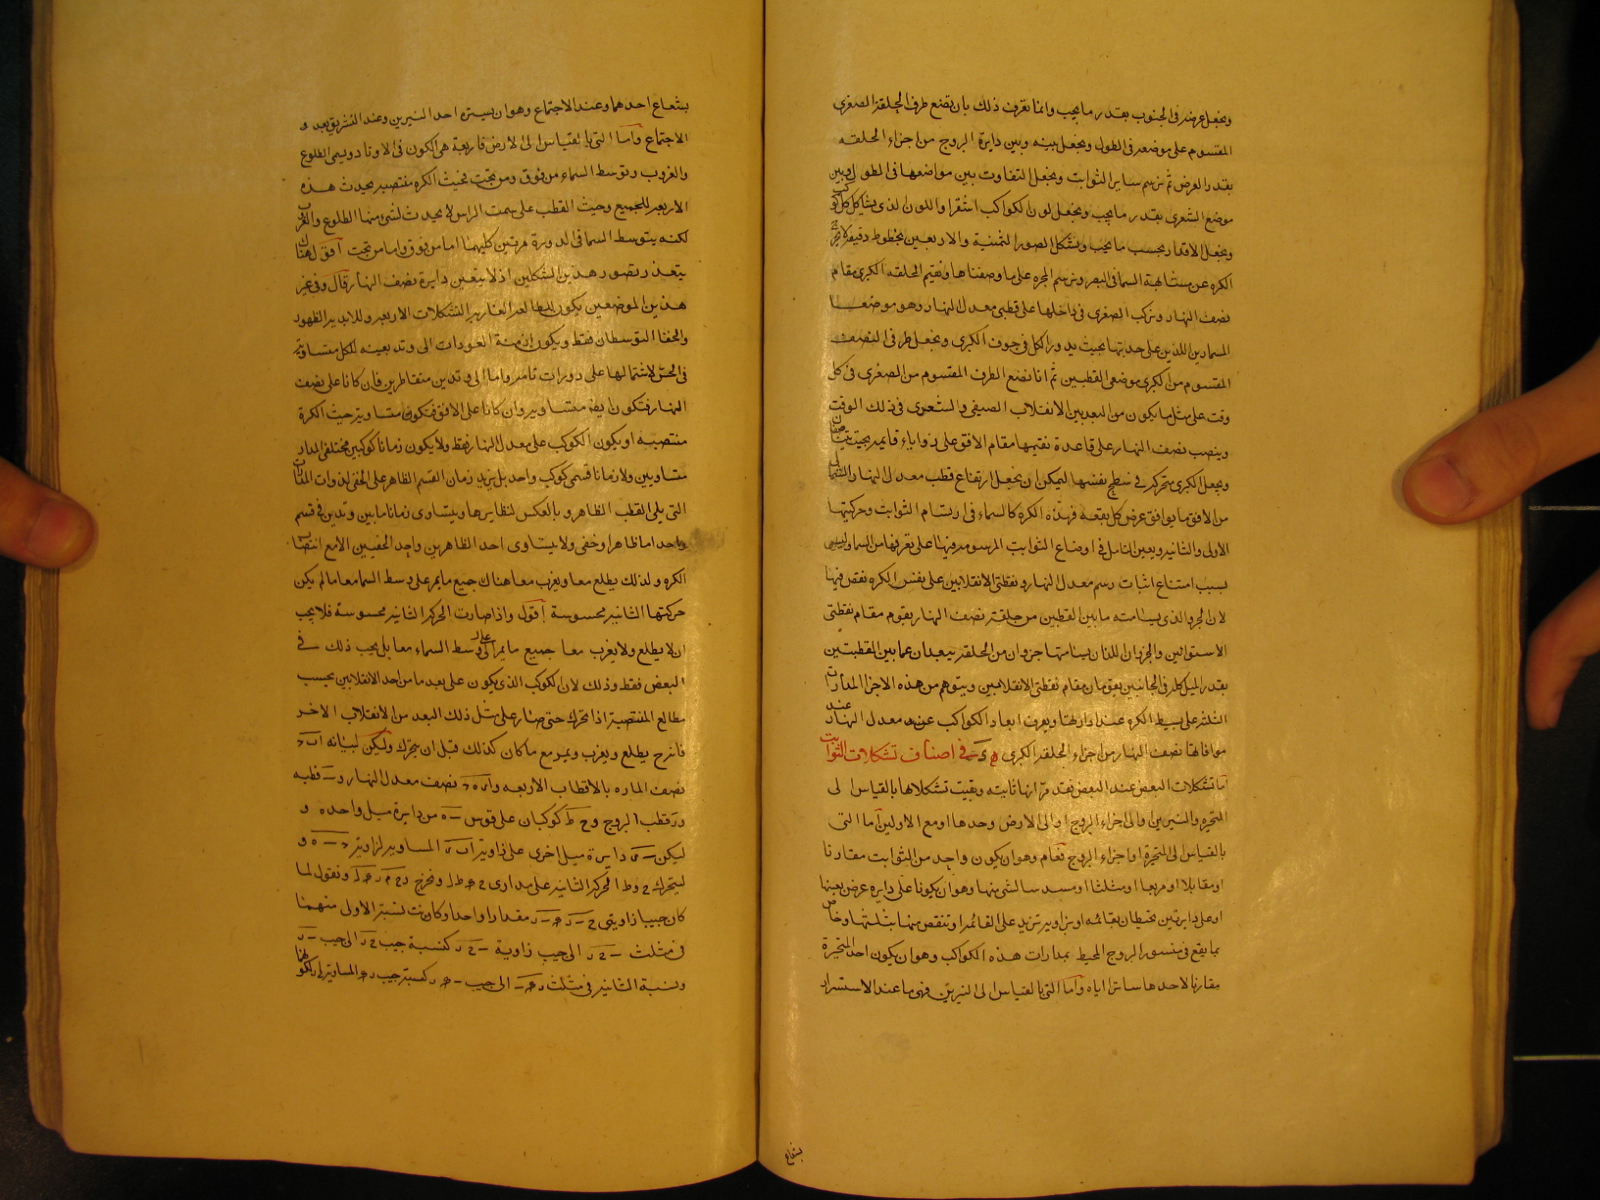 ونجعل عرضه فى الجنوب بقدر ما يجب وانما نعرف ذلك بان نضع طرف الحلقة الصغرى
المقسوم على موضعه فى الطول ونجعل بينه وبين دايرة البروج من اجزاء الحلقه
بقدر العرض ثم نرسم ساير الثوابت ونجعل التفاوت بين مواضعها فى الطول وبين
موضع الشعرى بقدر ما يجب ونجعل لون الكواكب اشقر او اللون الذى يشاكل كل كوكب
ونجعل الاقدار بحسب ما يجب ونشكل الصور الثمنية والاربعين بخطوط دقيقة
الكره عن مشابهة السما فى البصر ونرسم المجره على ما وصفناها ونقيم الحلقه الكبرى مقام
نصف النهار ونركب الصغرى فى داخلها على قطبى معدل النهار وهو موضعا
المسمارين اللذين على حدبتها بحيث يدورا لكل فى جوف الكبرى ونجعل طرفى النصف
المقسوم من الكبرى موضعى القطبين ثم انا نضع الطرف المقسوم من الصغرى فى كل
وقت على مثل ما يكون من البعد بين الانقلاب الصيفى والشعرى فى ذلك الوقت
وينصب نصف النهار على قاعدة نقيمها مقام الافق على زواياء قايمه بحيث
ونجعل الكبرى متحركه فى سطح نفسها ليمكن ان نجعل ارتفاع قطب معدل النهار الشمالى
من الافق ما يوافق عرض كل بقعه فهذه الكره كالسماء فى ارتسام الثوابت وحركتيها
الاولى والثانيه ويعين التامل فى اوضاع الثوابت المرسومه فيها على تعرفها من السما وليس
بسبب امتناع اثبات رسم معدل النهار ونقطتى الانقلابين على نفس الكره نقص فيها
لان الجزو الذى يسامته ما بين القطبين من حلقة نصف النهار يقوم مقام نقطتى
الاستوائين والجزوان اللذان يسامتهما جزوان من الحلقه يبعدان عما بين القطبين
بقدر الميل كله فى الجانبين يقومان مقام نقطتى الانقلابين ويتوهم من هذه الاجزا المدارات
الثلثه على بسيط الكره عند ادارتها ويعرف ابعاد الكواكب عن معدل النهار عند
موافاتها نصف النهار من اجزاء الحلقه الكبرى فى اصناف تشكلات الثوابت
اما تشكلات البعض عند البعض فقد مر انها ثابته وبقيت تشكلاها بالقياس الى
المتحيره والنيرين او الى اجزاء البروج او الى الارض وحدها او مع الاولين اما التى
بالقياس الى المتحيرة او اجزاء البروج فعام وهو ان يكون واحد من الثوابت مقارنا
او مقابلا او مربعا او مثلثا او مسدسا لشى منها وهو ان يكونا على دايره عرض بعينها
او على دايرتين تحيطان بقائمه او بزاوية تزيد على القائمه او تنقص منها بثلثها وخاص
بما يقع فى منشور البروج المحيط بمدارات هذه الكواكب وهو ان يكون احد المتحيرة
مقارنا لاحدها ساترا اياه واما التى بالقياس الى النيرين فهى ما عند الاستسرار
بشعاع
بشعاع احدهما وعند الاجتماع وهو ان يستره احد النيرين وعند التشريق بعد
الاجتماع واما التى بالقياس الى الارض فاربعة هى الكون فى الاوتاد ويسمى الطلوع
والغروب وتوسط السماء من فوق ومن تحت فحيث الكره منتصبه يحدث هذه
الاربعه للجميع وحيث القطب على سمت الراس لا يحدث لشى منها الطلوع والغروب
لكنه يتوسط السما فى الدورة مرتين كليهما اما من فوق واما من تحت اقول هناك
يتعذر تصور هذين الشكلين اذ لا يتعين دايرة نصف النهار قال وفى غير
هذين الموضعين يكون للطالعه الغاربه التشكلات الاربعه وللابدية الظهور
والخفا التوسطان فقط ويكون ازمنة العودات الى وتد بعينه للكل متساوية
فى الحس لاشتمالها على دورات تامه واما الى وتدين متقاطرين فان كانا على نصف
النهار فتكون ايضا متساوية وان كانا على الافق فتكون متساوية حيث الكرة
منتصبه او يكون الكوكب على معدل النهار فقط ولا يكون زمانا كوكبين مختلفى المدار
متساويين ولا زمانا قسمى كوكب واحد بل يزيد زمان القسم الظاهر على الخفى لذوات المدارات
التى يلى القطب الظاهر وبالعكس لنظايرها ويتساوى زمانا ما بين وتدين فى قسم
واحد اما ظاهر او خفى ولا يتساوى احد الظاهرين واحد الخفيين الا مع انتصاب
الكره ولذلك يطلع معا ويغرب معا هناك جميع ما يمر على وسط السما معا ما لم يكن
حركتها الثانيه محسوسة اقول واذا صارت الحركه الثانيه محسوسة فلا يجب
ان لا يطلع ولا يغرب معا جميع ما يمر على وسط السماء معا بل يجب ذلك فى
البعض فقط وذلك لان الكوكب الذى يكون على بعد ما من احد الانقلابين بحسب
مطالع المنتصبه اذا تحرك حتى صار على مثل ذلك البعد من الانقلاب الاخر
فانه يطلع ويغرب ويمر مع ما كان كذلك قبل ان يتحرك وليكن لبيانه
نصف الماره بالاقطاب الاربعه و نصف معدل النهار و قطبه
و قطب البروج و كوكبان على قوس من دايرة ميل واحده و
ليكن دايرة ميل اخرى على زاوية المساويه لزاوية و
ليتحرك الحركه الثانيه على مدارى ونخرج ونقول لما
كان جيبا زاويتى مقدارا واحدا وكانت نسبة الاولى منهما
فى مثلث الى جيب زاوية كنسبة جيب الى جيب
ونسبة الثانيه فى مثلث الى جيب كنسبة جيب المساوية